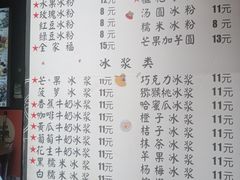 水果冰粉 12元
★玫瑰冰粉 8元
红豆冰粉 8元
绿豆冰粉 8元
★全家福 15元
冰粉 11元
汤圆冰粉 11元
冰粉 12元
芒果加芋圆 13元
冰浆类
★芒果冰浆 11元
菠萝冰浆 11元
★香蕉牛奶冰浆 11元
★咖啡牛奶冰浆 11元
★黄瓜牛奶冰浆 11元
★葡萄牛奶冰浆 11元
★花生牛奶冰浆 11元
黑糯米冰浆 11元
白糯米冰浆
巧克力冰浆 11元
猕猴桃冰浆 11元
哈蜜瓜冰浆 11元
橙子冰浆 11元
桔子冰浆 11元
抹茶冰浆 11元
苹果冰浆
杨梅冰浆